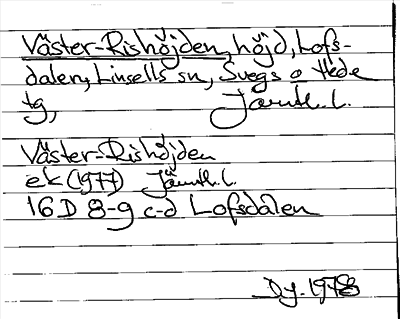 Väster-Rishöjden, höjd, Lofs-
dalen, Linsells sn, Svegs o Hede
tg, Jämtl. l.
Väster-Rishöjden
ek (1977) Jämtl. l.
16 D 8-9 c-d Lofsdalen
Dy. 1978